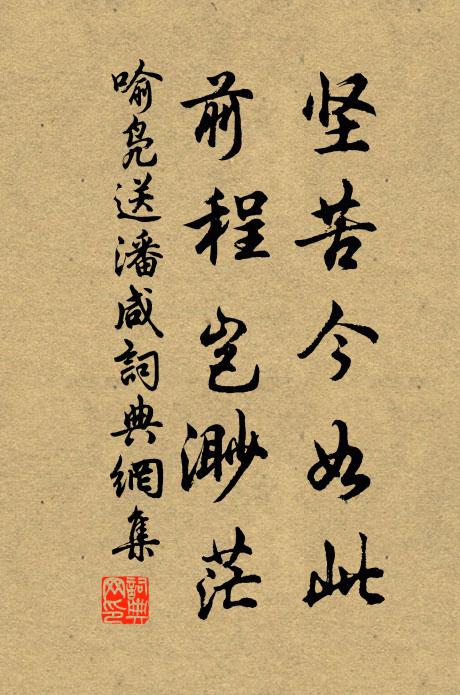 坚苦今如此
前程岂渺茫
喻凫送潘咸詞典網集
詞典網印